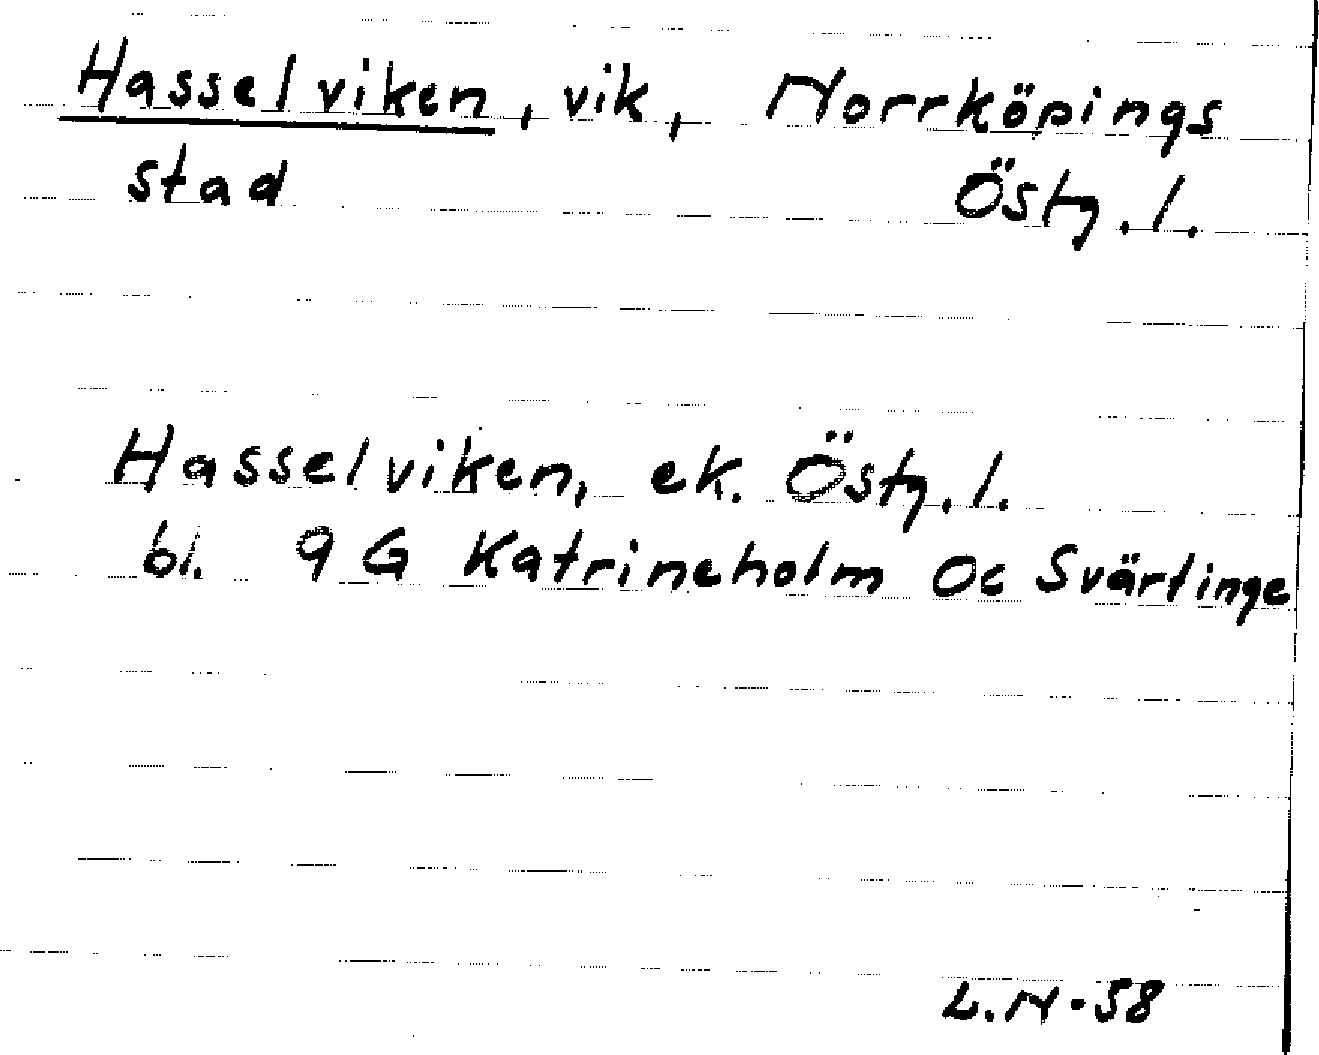 Hasselviken, vik, Norrköpings
stad Östg.l.
Hasselviken, ek. Östg.l.
bl. 9 G Katrineholm Oc Svärtinge
L.N-58